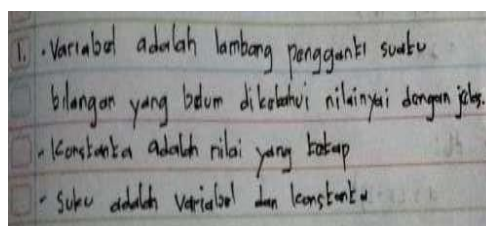 1. • Variabel adalah lambang pengganti suatu
bilangan yang belum diketahui nilainyai dengan jelas.
- Konstanta adalah nilai yang tetap
• Suku adalah variabel dan konstanta